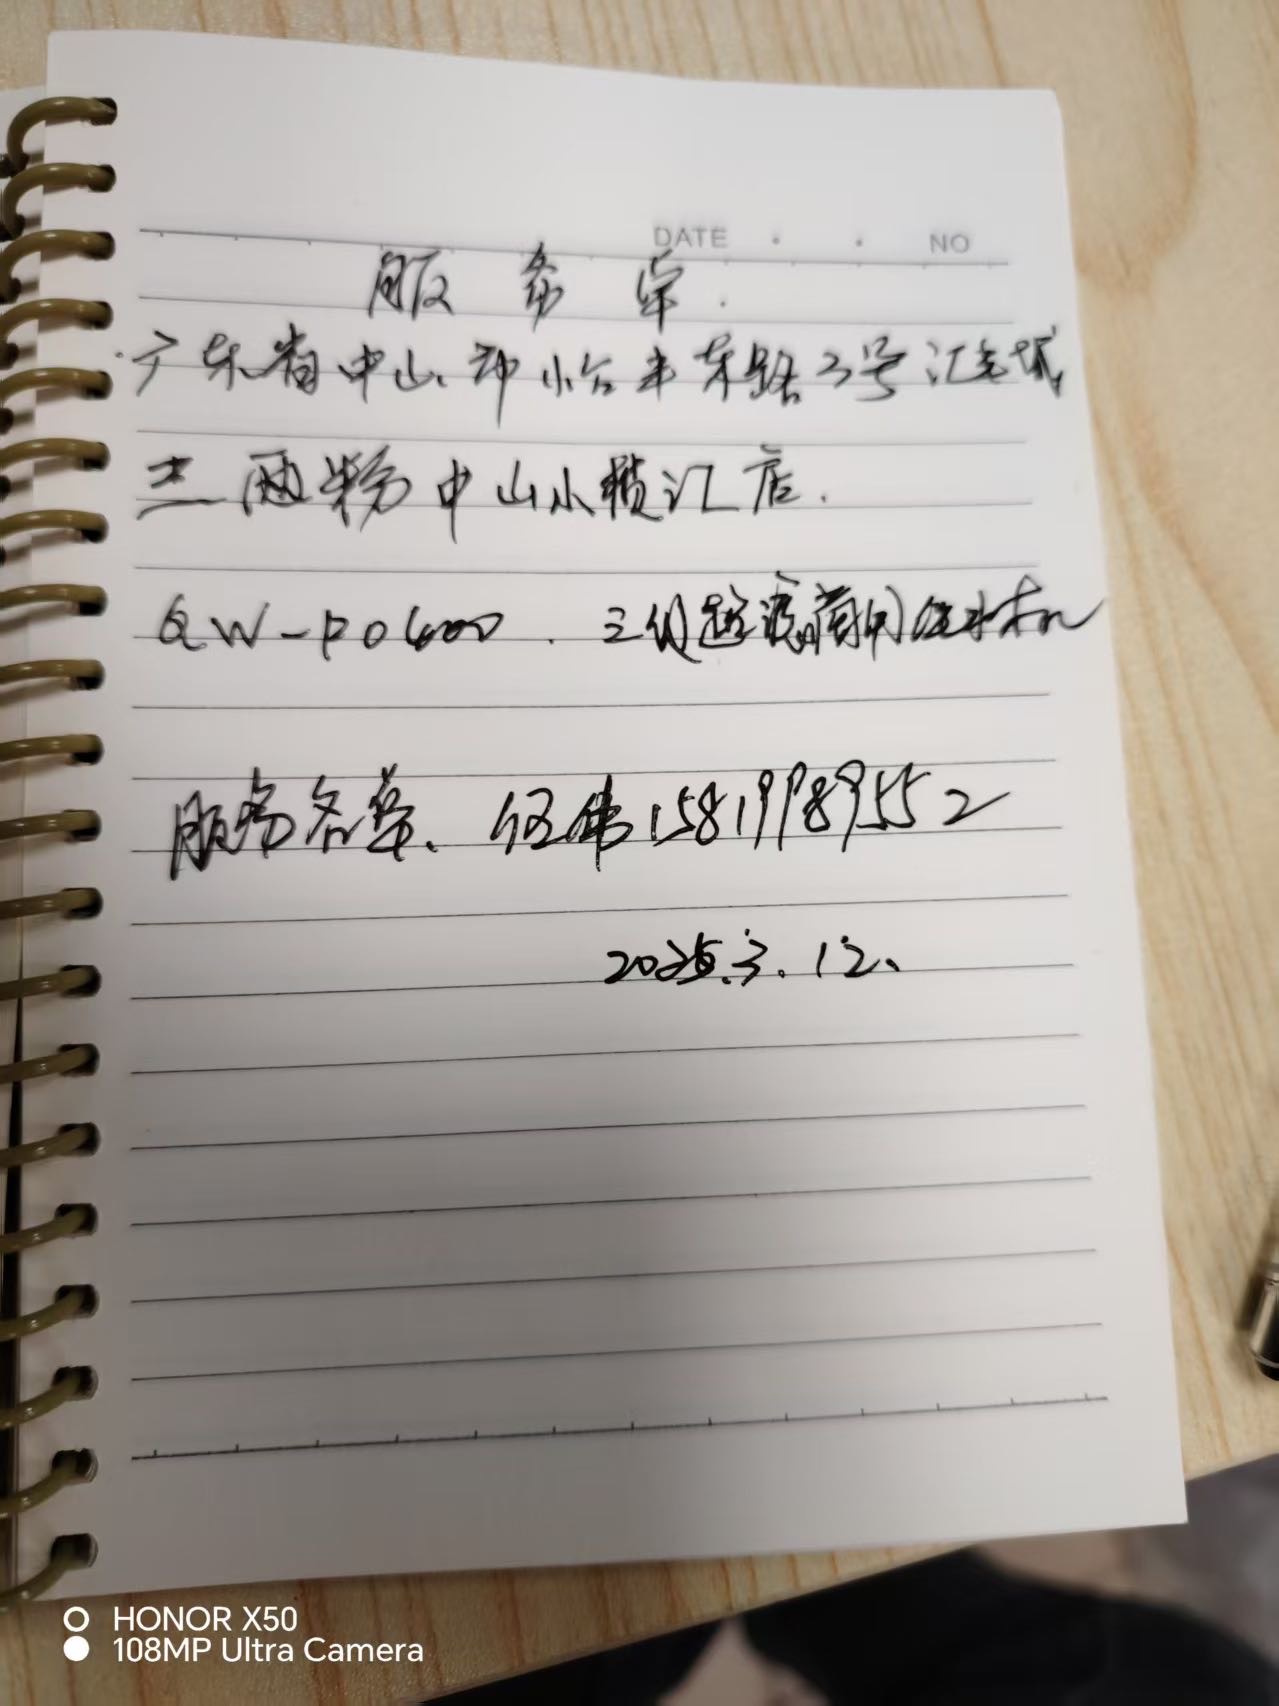 DATE . . NO
服务单.
广东省中山市小榄丰东路3号汇宝城
三两粉中山小榄汇店.
QW-PO600. 三级超滤商用净水机
服务名单、伍伟15819989552
2025.3.12、
HONOR X50
108MP Ultra Camera